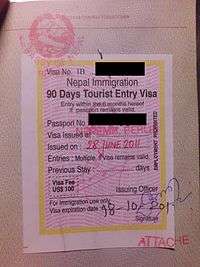 Visa No. TB
Nepal Immigration
90 Days Tourist Entry Visa
Entry within six months hereof
if passport remains valid.
Passport No
Visa Issued at
Issued on : 28 JUNE 2011
Entries : Multiple, if visa remains valid.
Previous Stay days
EMPLOYMENT PROHIBITED
Visa Fee
US$ 100
Issuing Officer
For Immigration use only
Visa expiration date
Signature
ATTACHE